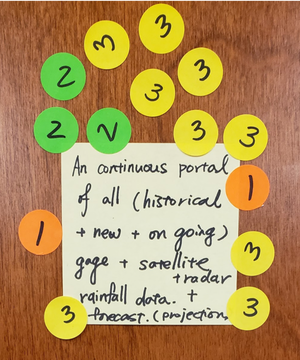 3
3
2
3
3
2
2
3
3
An continuous portal
of all (historical
1
+ new + on going)
1
gage + satellite
+ radar
3
rainfall data. +
3
3
forecast. (projections